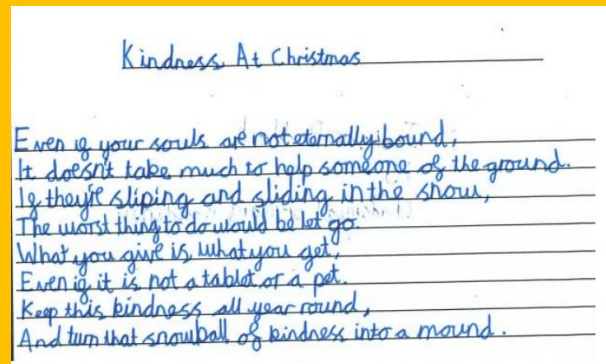 Kindness At Christmas
Even if your souls are not eternally bound,
It doesn't take much to help someone of the ground.
If they're sliping and sliding in the snow,
The worst thing to do would be let go.
What you give is what you get,
Even if it is not a tablet or a pet.
Keep this kindness all year round,
And turn that snowball of kindness into a mound.